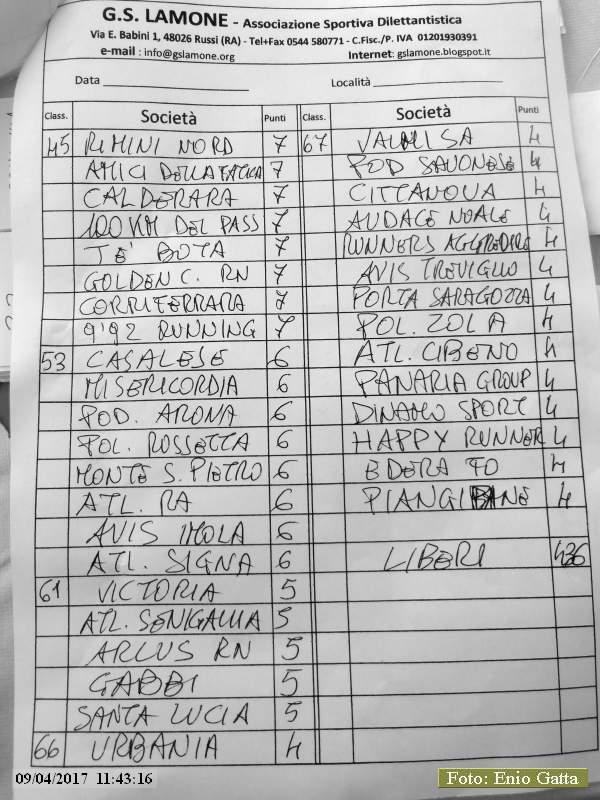 G.S. LAMONE - Associazione Sportiva Dilettantistica
Via E. Babini 1, 48026 Russi (RA) - Tel+Fax 0544 580771 - C.Fisc./P. IVA 01201930391
e-mail : info@gslamone.org Internet: gslamone.blogspot.it
Data Località
Class. Società Punti Class. Società Punti
45 RIMINI NORD 7 67 VALLISA 4
AMICI DELLA FATICA 7 POD SAVONESE 4
CALDERARA 7 CITTANOVA 4
100 KM DEL PASS 7 AUDACE NOALE 4
TE' BOTA 7 RUNNERS AGGREDIRE 4
GOLDEN C. RN 7 AVIS TREVIGLIO 4
CORRIFERRARA 7 PORTA SARAGOZZA 4
9'92 RUNNING 7 POL. ZOLA 4
53 CASALESE 6 ATL. CIBENO 4
MISERICORDIA 6 PANARIA GROUP 4
POD. ARONA 6 DINAMO SPORT 4
POL. ROSSETTA 6 HAPPY RUNNER 4
MONTE S. PIETRO 6 EDERA FO 4
ATL. RA 6 PIANGIPANE 4
AVIS IMOLA 6
ATL. SIGNA 6 LIBERI 436
61 VICTORIA 5
ATL. SENIGALLIA 5
ARCUS RN 5
GABBI 5
SANTA LUCIA 5
66 URBANIA 4
09/04/2017 11:43:16
Foto: Enio Gatta